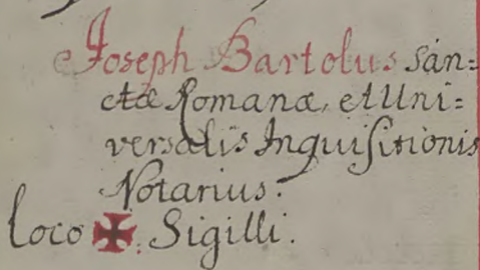 Joseph Bartolus san=
ctæ Romanæ, et Uni=
versalis Inquisitionis
Notarius.
loco ✠ Sigilli.